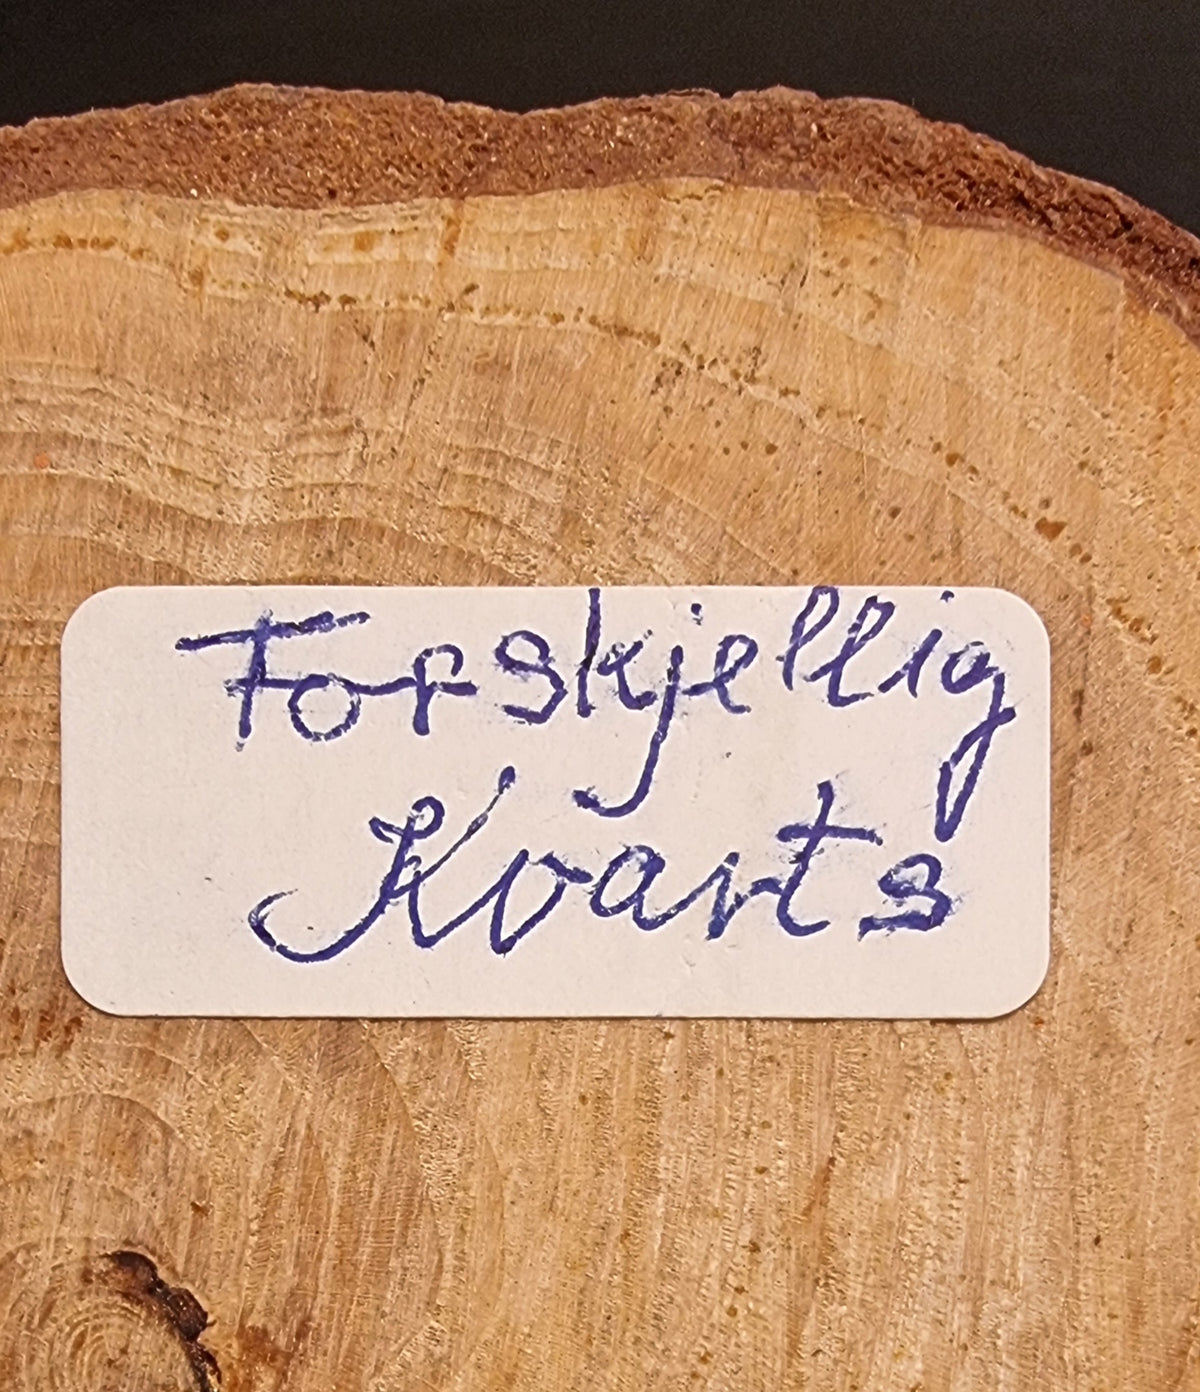 Forskjellig
Kvarts